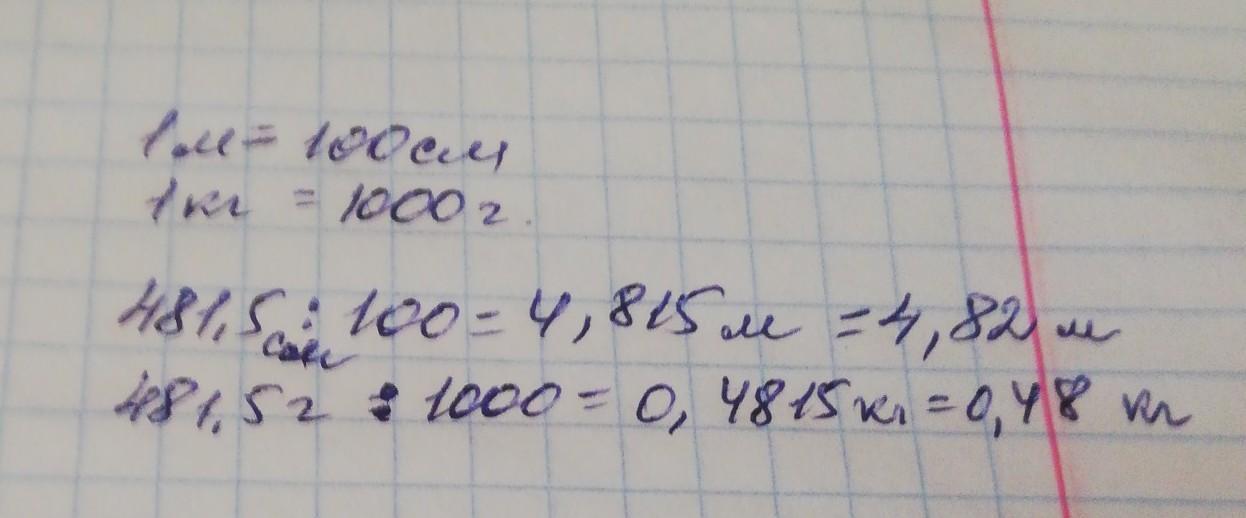 1м = 100см
1кг = 1000г.
481,5см : 100 = 4,815м = 4,82 м
481,5г : 1000 = 0,4815кг = 0,48 кг